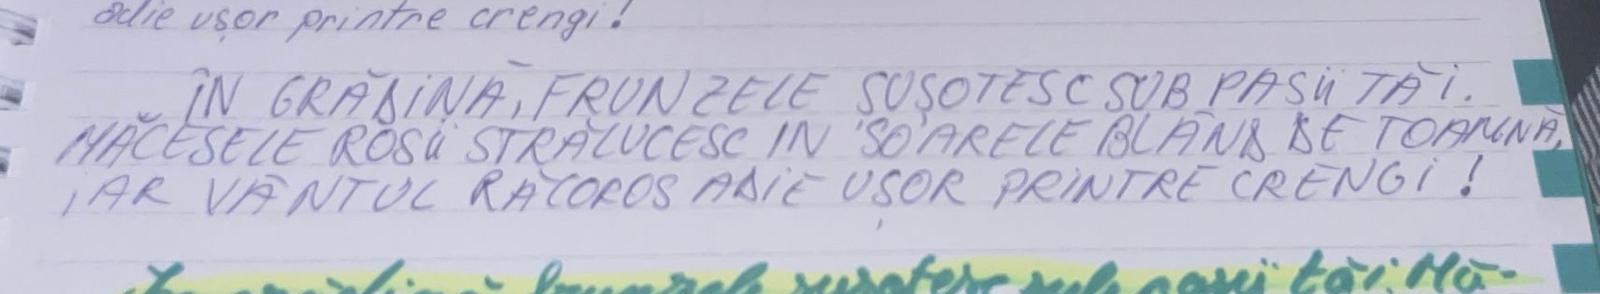 adie ușor printre crengi!
ÎN GRĂDINĂ, FRUNZELE ȘUȘOTESC SUB PAȘII TĂI.
MĂCEȘELE ROȘII STRĂLUCESC IN SOARELE BLÂND DE TOAMNĂ,
IAR VÂNTUL RĂCOROS ADIE UȘOR PRINTRE CRENGI!
frunzele șușotesc sub pașii tăi. Mă-